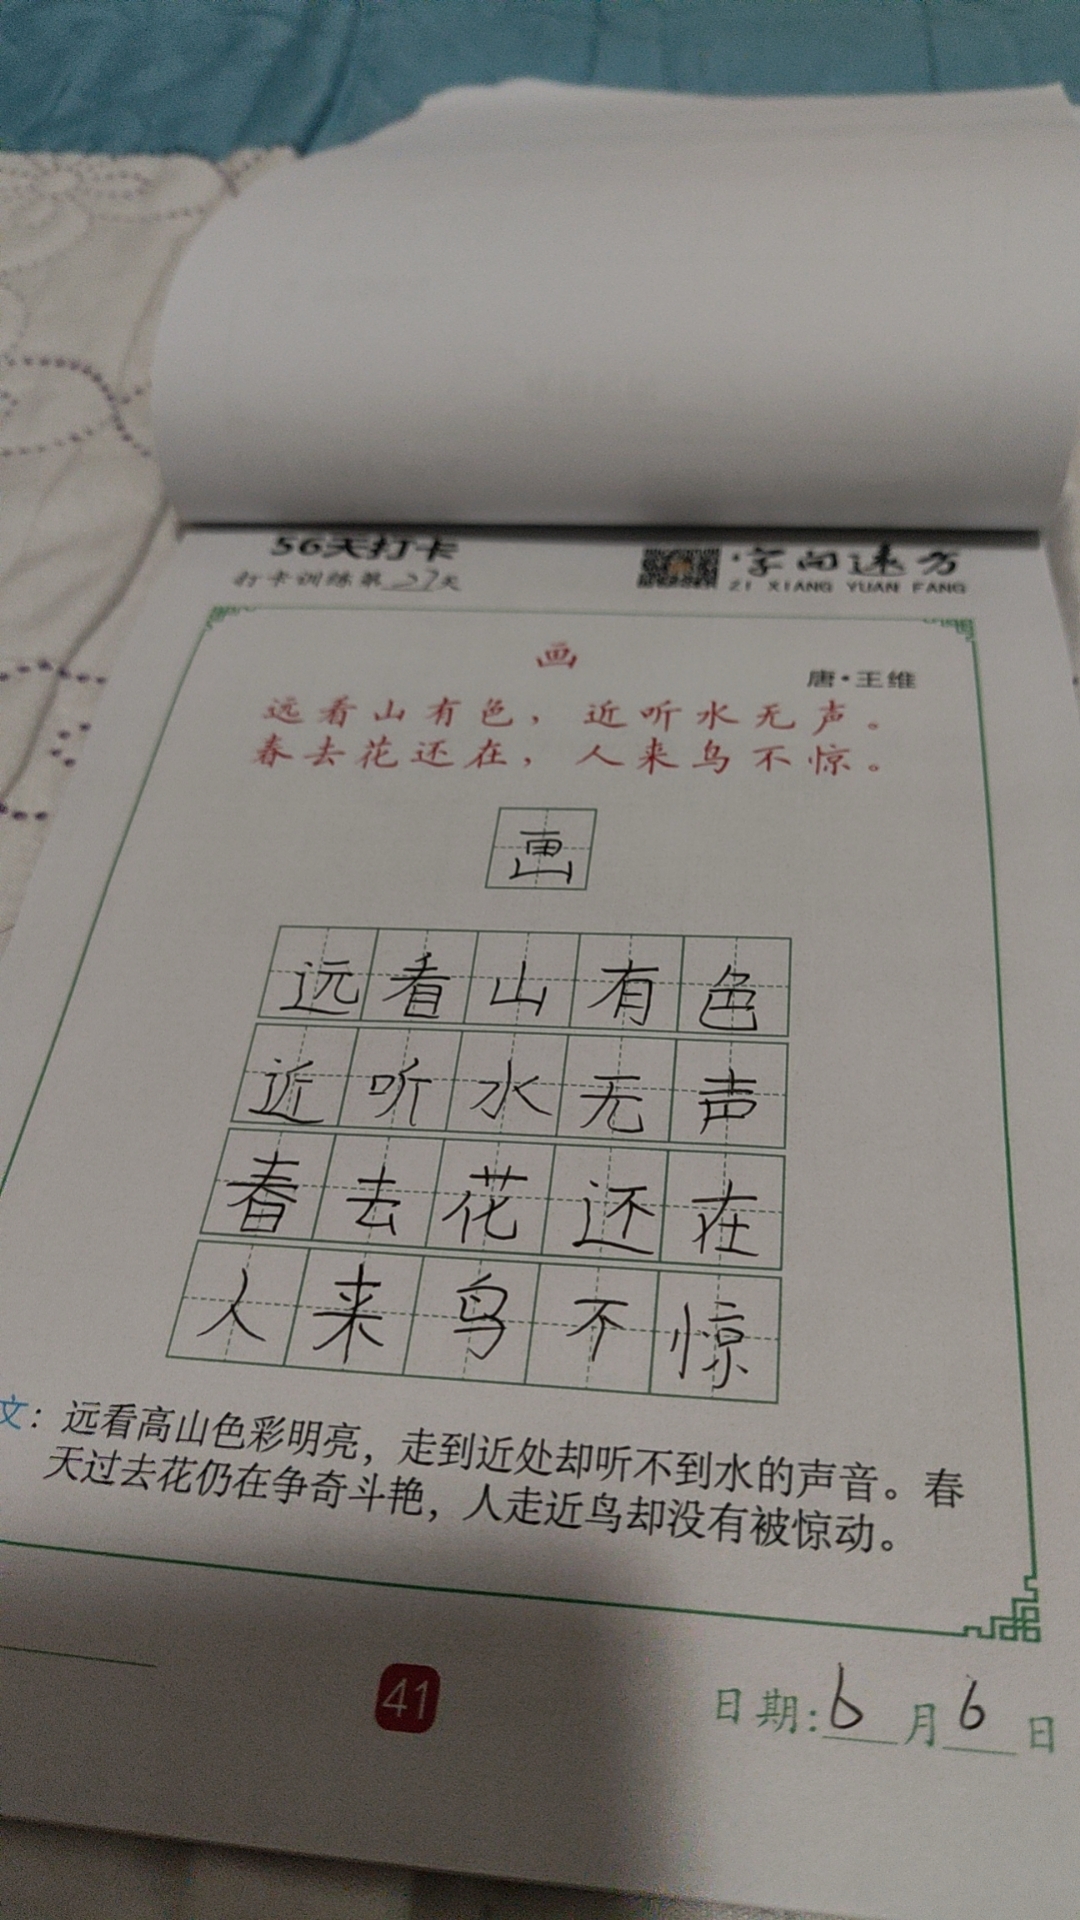 56天打卡
打卡训练第27天
字向速方
ZI XIANG YUAN FANG
画
唐·王维
远看山有色，近听水无声。
春去花还在，人来鸟不惊。
画
远看山有色
近听水无声
春去花还在
人来鸟不惊
文：远看高山色彩明亮，走到近处却听不到水的声音。春
天过去花仍在争奇斗艳，人走近鸟却没有被惊动。
41
日期:6月6日